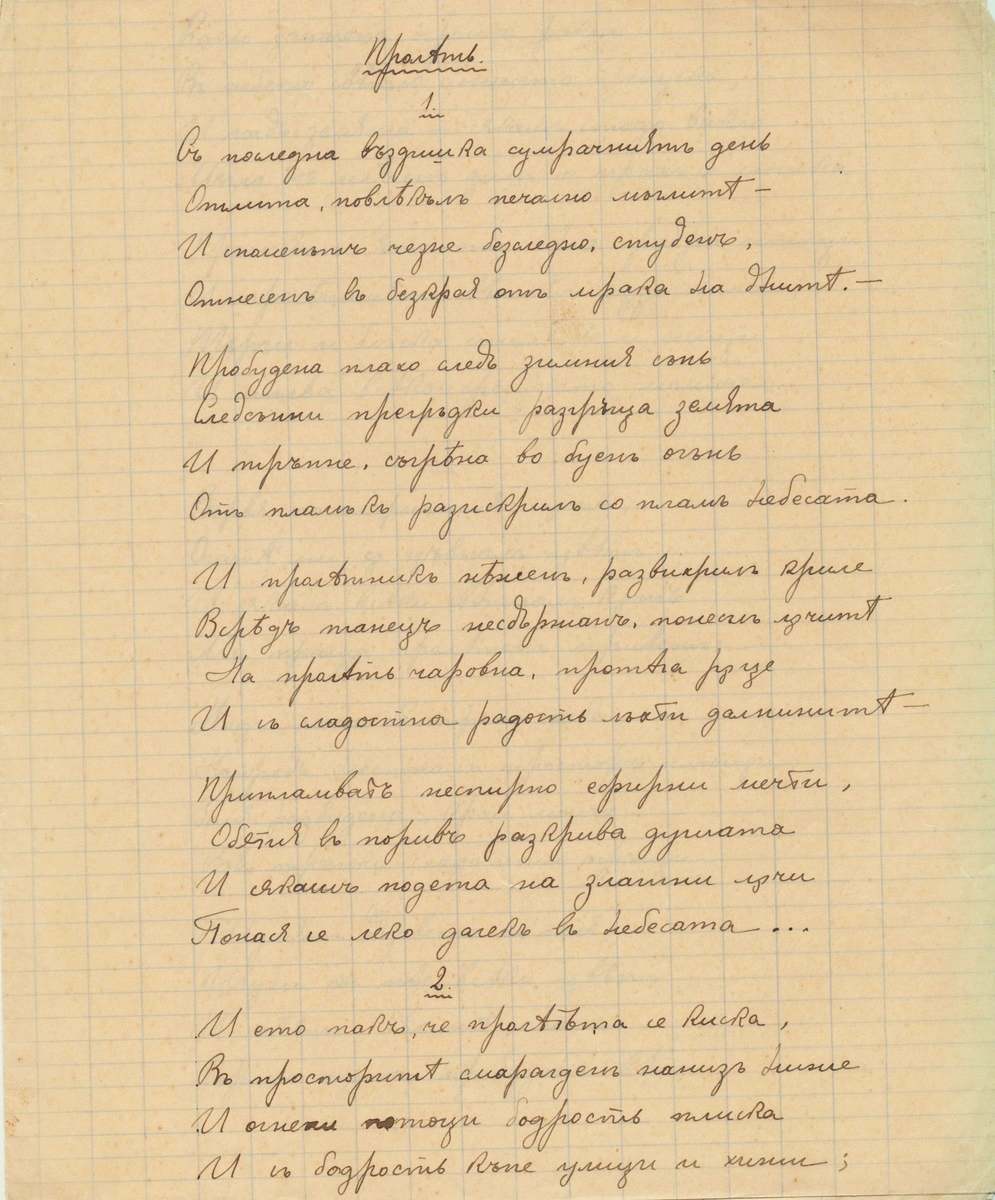 Пролѣть.
1.
Съ последна въздишка сумрачниятъ день
Отлита, повлѣкълъ печално мъглитѣ —
И споменътъ чезне безследно, студенъ,
Отнесенъ въ безкрая отъ мрака на днитѣ. —
Пробудена плахо следъ зимния сънь
Следсънни прегръдки разгръща земята
И тръпне, съгрѣна во буенъ огънь
Отъ пламъкъ разискрилъ со пламъ небесата.
И пролѣтникъ нѣженъ, развихрилъ криле
Всрѣдъ танецъ несдържанъ, понесълъ лѫчитѣ
На пролѣть чаровна, протѣга рѫце
И съ сладостна радость лъсти далнинитѣ —
Припламватъ неспирно ефирни мечти,
Обятия въ поривъ разкрива душата
И сякашъ подета на златни лѫчи
Понася се леко далекъ въ небесата...
2.
И ето пакъ, че пролѣтьта се киска,
Въ просторитѣ смарагденъ нанизъ ниже
И огнени потоци бодрость плиска
И съ бодрость къпе улици и хижи;